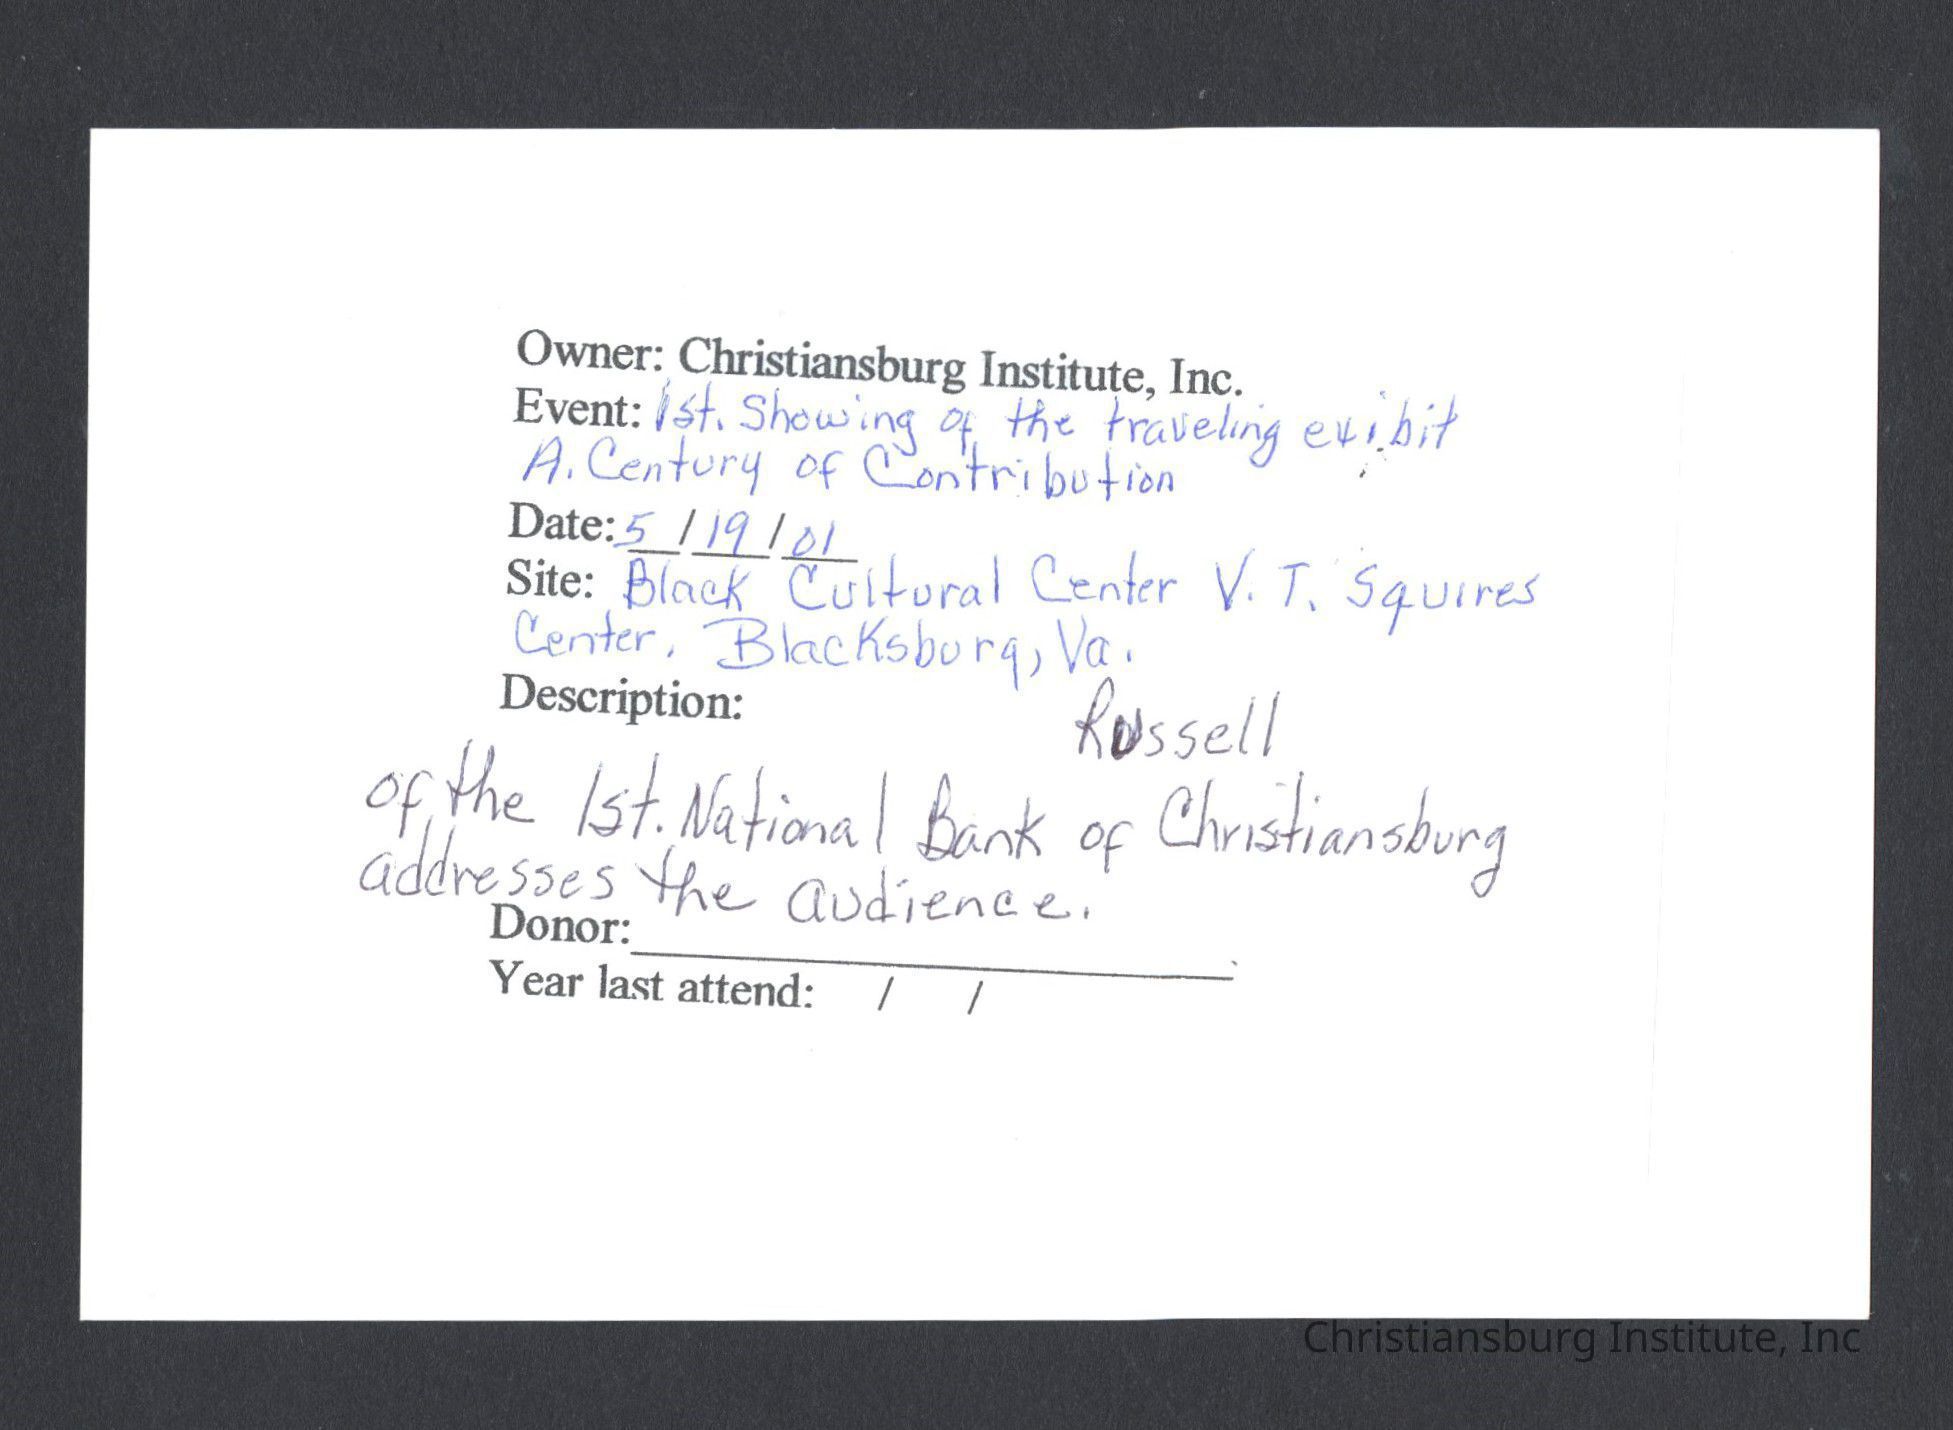 Owner: Christiansburg Institute, Inc.
Event: 1st. Showing of the traveling exibit
A. Century of Contribution
Date: 5 / 19 / 01
Site: Black Cultural Center V. T. Squires
Center. Blacksburg, Va.
Description:
Russell
of the 1st. National Bank of Christiansburg
addresses the audience.
Donor:
Year last attend: / /
Christiansburg Institute, Inc